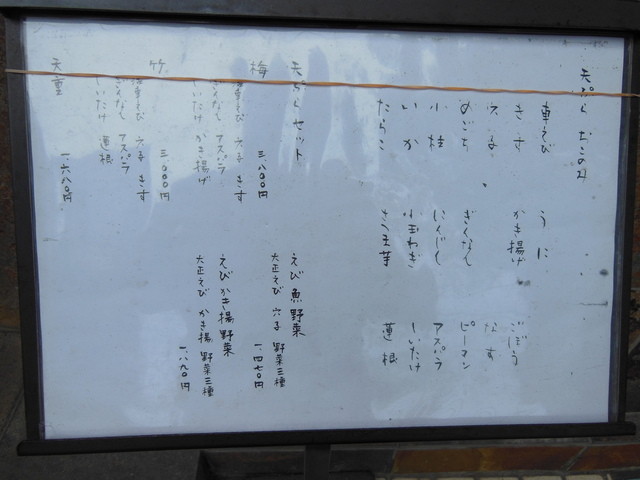 天ぷら おこのみ
車えび うに
きす かき揚げ ごぼう
なす
めごち ぎんなん ピーマン
小柱 にんじん アスパラ
いか 小玉ねぎ しいたけ
たらこ さつま芋 蓮根
天ぷらセット
えび魚野菜
大正えび 穴子 野菜三種
一、四七〇円
えびかき揚野菜
大正えび かき揚 野菜三種
一、八八〇円
梅 三、八〇〇円
車えび 穴子 きす
ぎんなん アスパラ
しいたけ かき揚げ
竹 三、〇〇〇円
車えび 穴子 きす
ぎんなん アスパラ
しいたけ 蓮根
天重 一、六八〇円